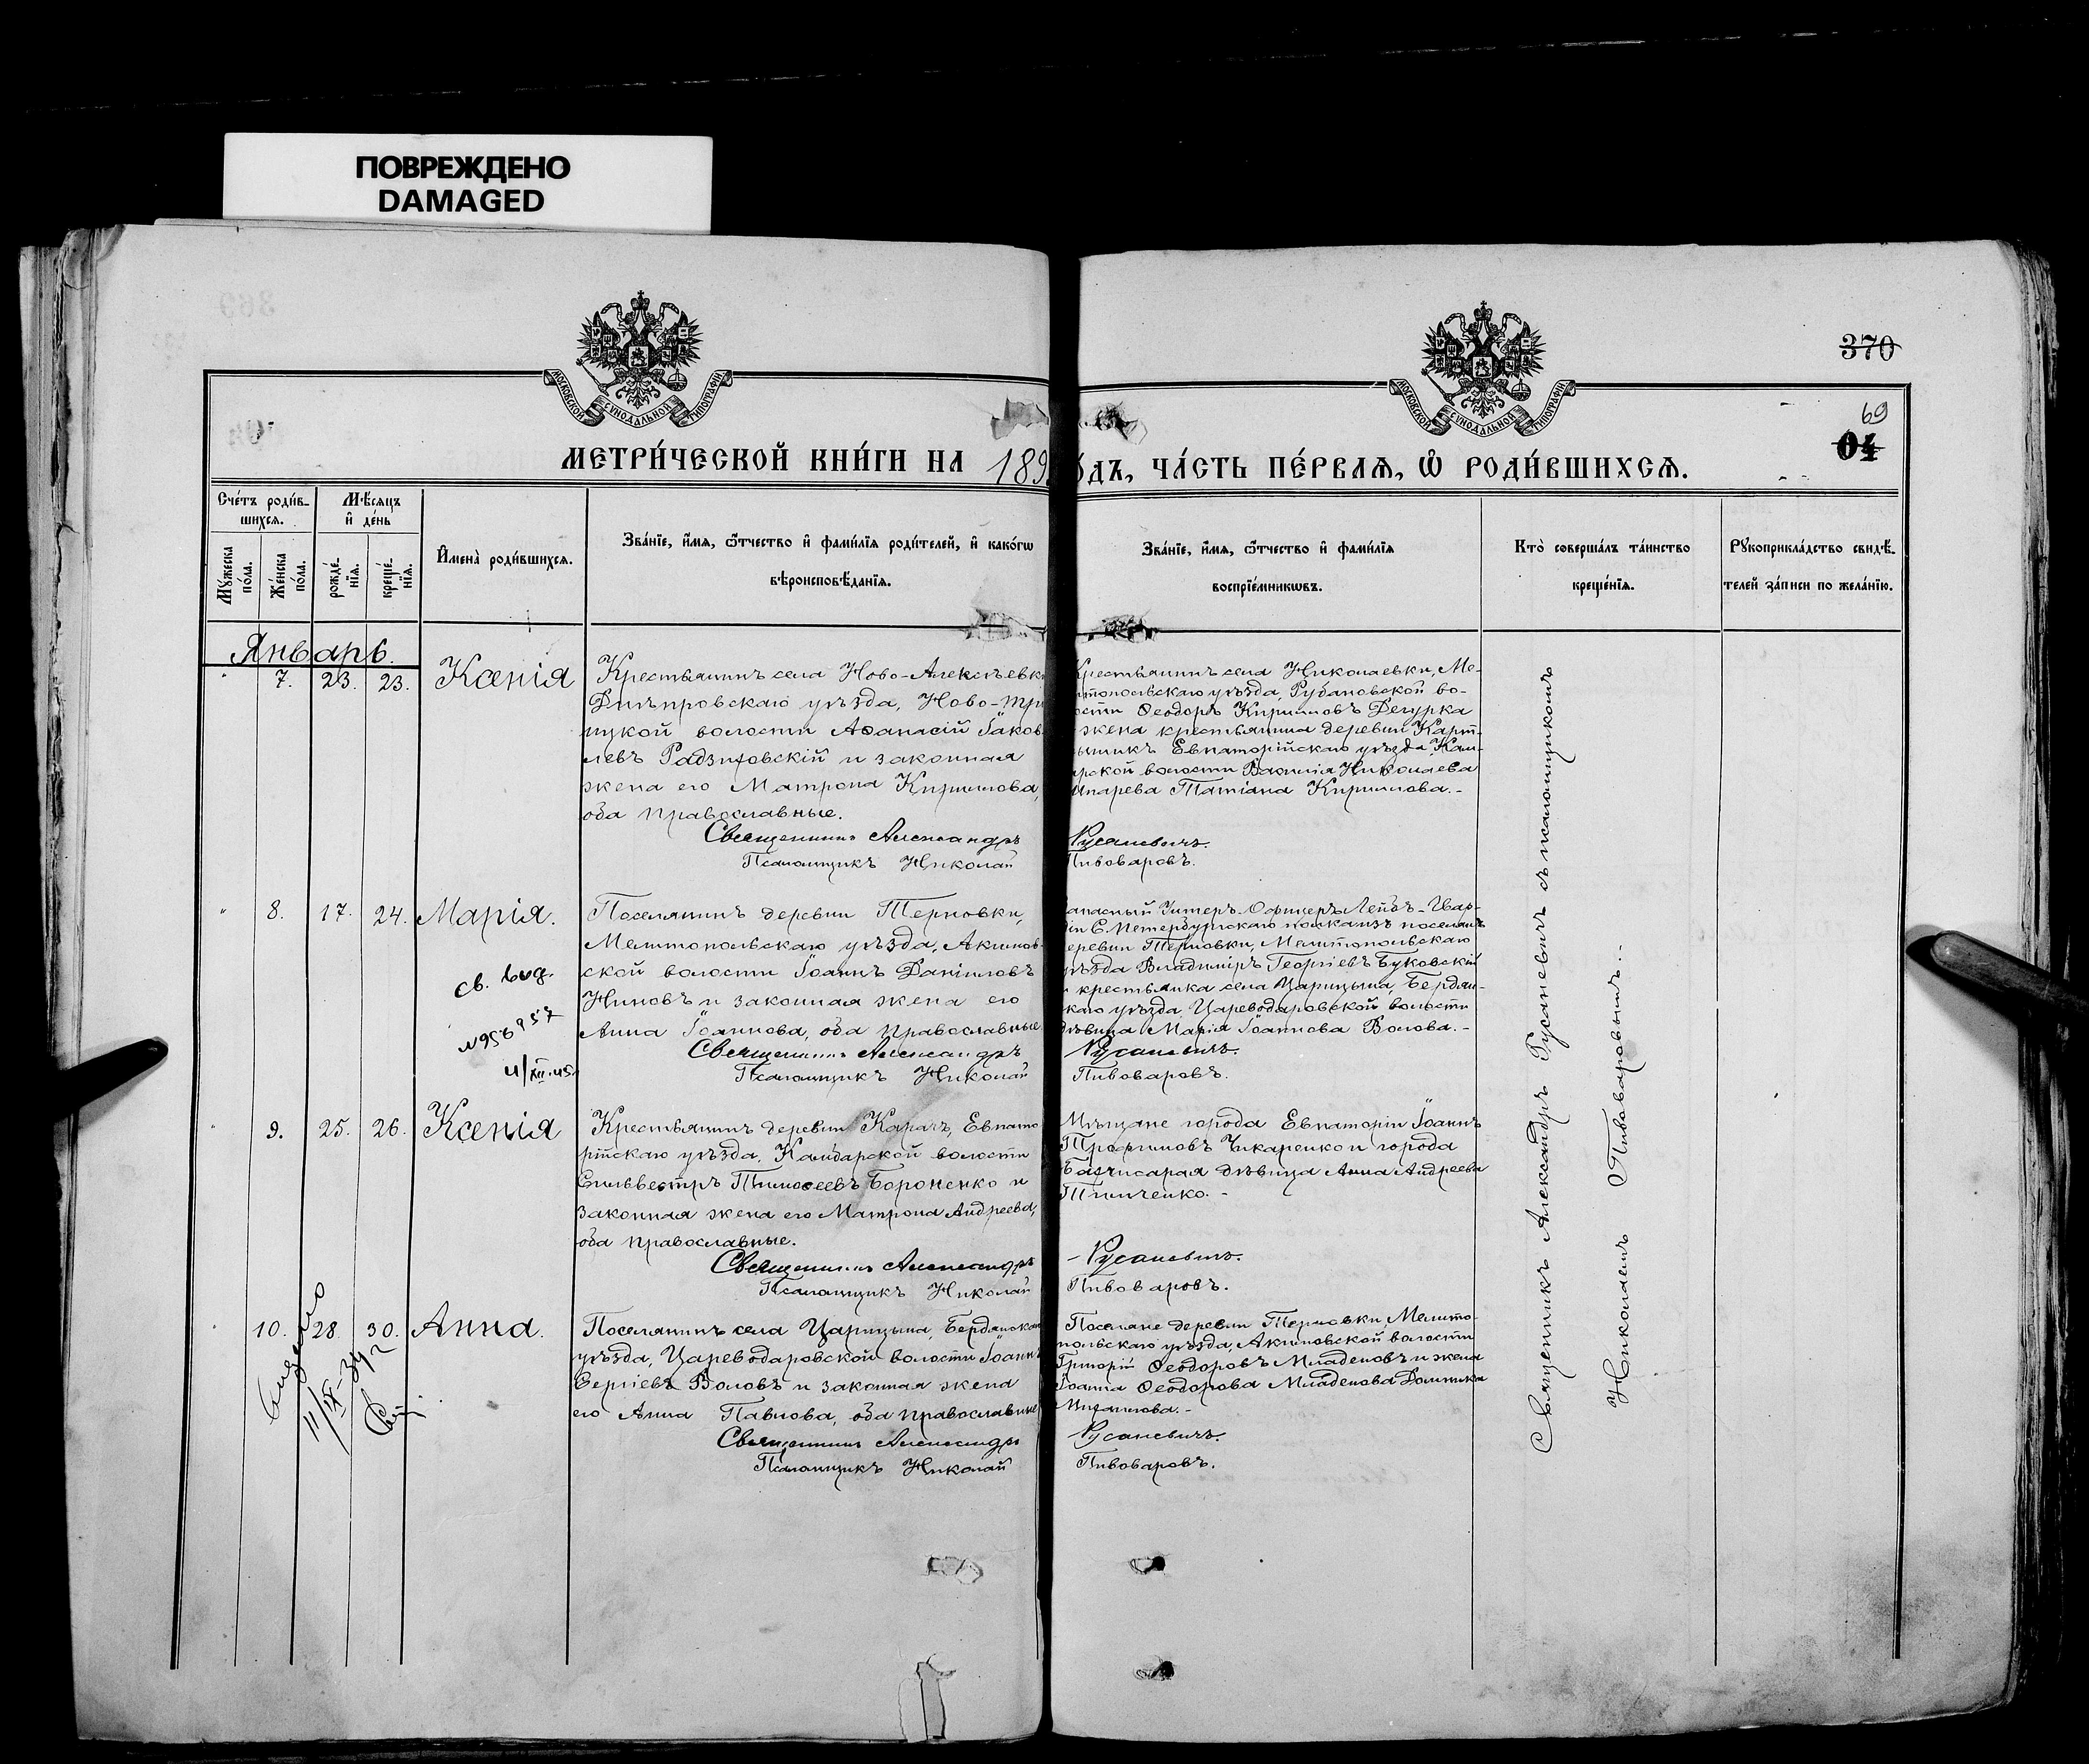 ПОВРЕЖДЕНО
DAMAGED
370
69
04
МОСКОВСКОЙ СУНОДАЛЬНОЙ ТИПОГРАФІИ
МОСКОВСКОЙ СУНОДАЛЬНОЙ ТИПОГРАФІИ
МЕТРИ́ЧЕСКОЙ КНИ́ГИ НА 189
О́ДЪ, ЧА́СТЬ ПЕ́РВАѦ, Ѽ РОДИ́ВШИХСѦ.
Сче́тъ роди́в-
шихсѧ.
Мꙋжеска по́ла.
Же́нска по́ла.
Мѣ́сѧцъ
и҆ де́нь
рожде́-нїѧ.
креще́-нїѧ.
И҆мена̀ роди́вшихсѧ.
Зва́нїе, и҆́мѧ, ѻ҆́тчество и҆ фами́лїѧ роди́телей, и҆ како́гѡ
вѣроисповѣ́данїѧ.
Зва́нїе, и҆́мѧ, ѻ҆́тчество и҆ фами́лїѧ
воспрїе́мникѡвъ.
Кто̀ соверша́лъ та́инство
креще́нїѧ.
Рꙋкоприкла́дство свидѣ́-
телей за́писи по жела́нїю.
Январь.
" 7. 23. 23. Ксенія
Крестьянинъ села Ново-Алексѣевк
Днѣпровскаго уѣзда, Ново-Тро
ицкой волости Аѳанасій Іаков
левъ Радзиховскій и законная
жена его Матрона Кирилова,
оба православные.
Священникъ Александръ
Псаломщикъ Николай
Крестьянинъ села Николаевки, Ме-
топольскаго уѣзда, Рубановской во-
ости Ѳеодоръ Кириловъ Дегурка
жена крестьянина деревни Карт-
Евпаторійскаго уѣзда
рской волости Василія Николаева
Татіана Кирилова.-
Русаневичъ.
Пивоваровъ.
" 8. 17. 24. Марія.
св. выд.
N956957
4/XII.45.
Поселянинъ деревни Терновки,
Мелитопольскаго уѣзда, Акимов-
ской волости Іоаннъ Даніиловъ
Ниновъ и законная жена его
Анна Іоаннова, оба православные
Священникъ Александръ
Псаломщикъ Николай
апасный Унтеръ-Офицеръ Лейбъ-Гвар-
іи С.Петербургскаго полка изъ поселянъ
еревни Терновки, Мелитопольскаго
уѣзда Владиміръ Георгіевъ Буковскій
и крестьянка села Царицына, Бердян-
скаго уѣзда, Цареводаровской волости
дѣвица Марія Іоаннова Волова.-
Русаневичъ.
Пивоваровъ.
" 9. 25. 26. Ксенія
Крестьянинъ деревни Карачъ, Евпато
рійскаго уѣзда, Камбарской волости
Сильвестръ Тимоѳеевъ Бороненко и
законная жена его Матрона Андреева,
оба православные.
Священникъ Александръ
Псаломщикъ Николай
Мѣщане города Евпаторіи Іоаннъ
Трофимовъ Чикаренко и города
Бахчисарая дѣвица Анна Андреева
Тимченко.-
- Русаневичъ.
Пивоваровъ.
" 10. 28. 30. Анна.
Выдано
11/IX-34 г
Поселянинъ села Царицына, Бердянскаго
уѣзда, Цареводаровской волости Іоаннъ
Сергіевъ Воловъ и законная жена
его Анна Павлова, оба православные
Священникъ Александръ
Псаломщикъ Николай
Поселяне деревни Терновки Мелито-
польскаго уѣзда, Акимовской волости
Григорій Ѳеодоровъ Младеновъ и жена
Іоанна Ѳеодорова Младенова Домникa
Михаилова.-
Русаневичъ.
Пивоваровъ.
Священникъ Александръ Русаневичъ съ псаломщикомъ
Николаемъ Пивоваровымъ.